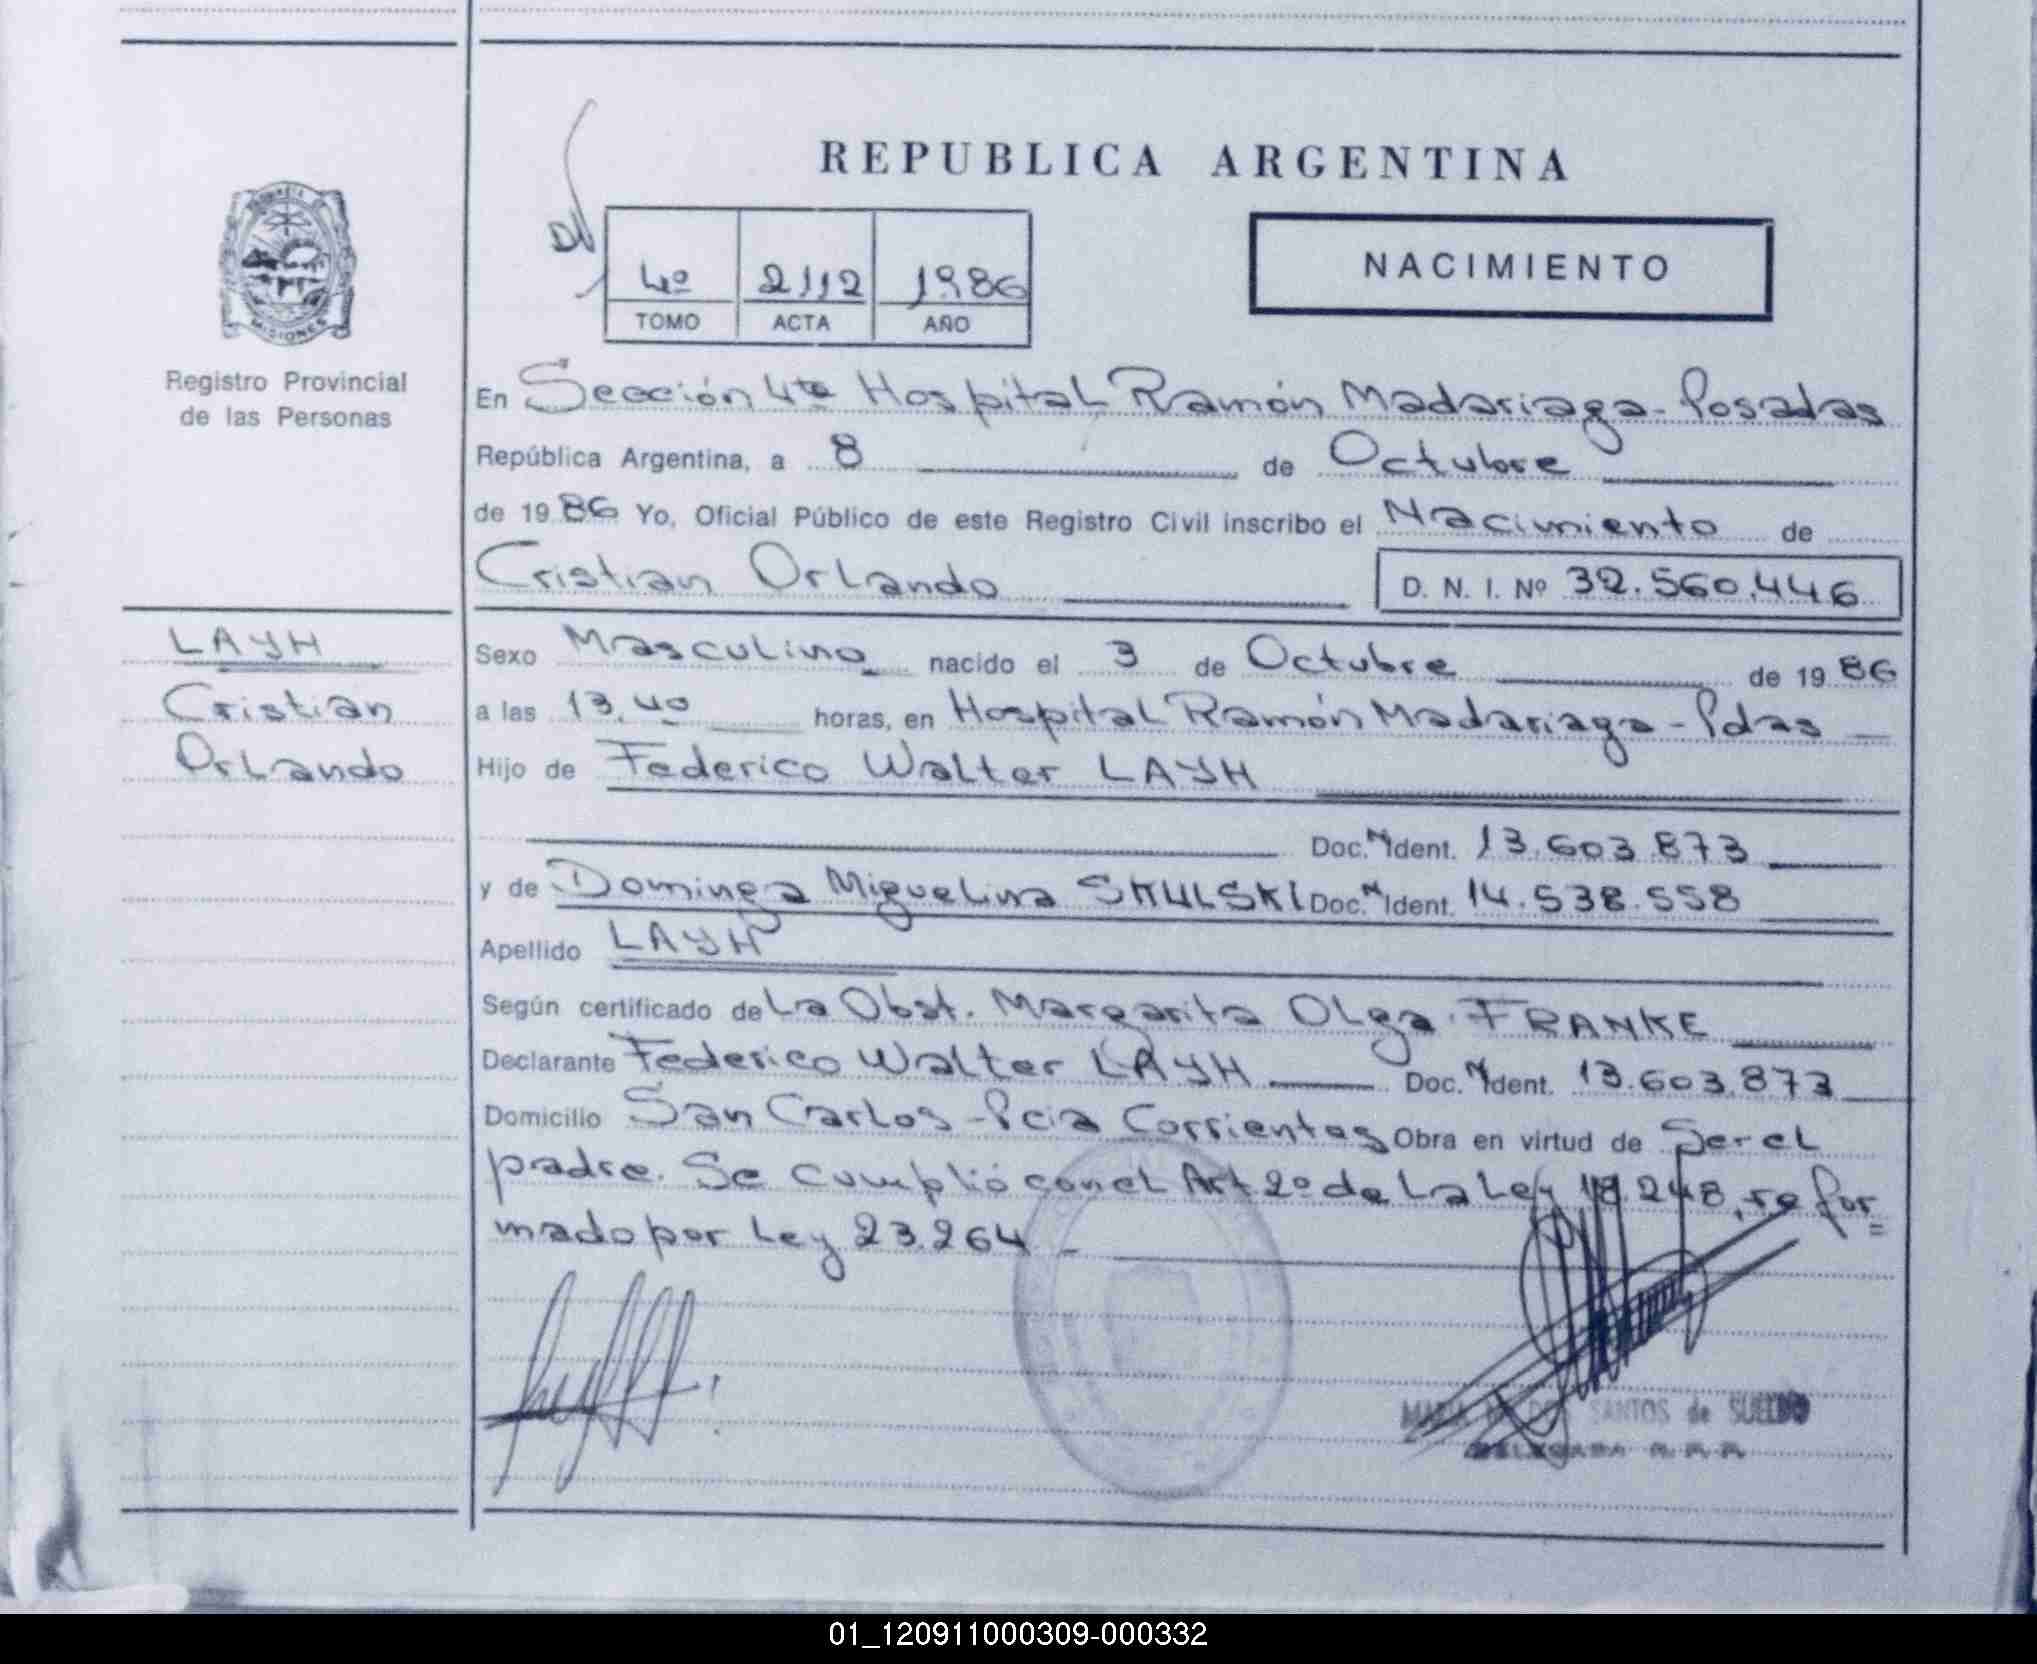 REPUBLICA ARGENTINA
4º 2112 1986
TOMO ACTA AÑO
NACIMIENTO
MISIONES
Registro Provincial
de las Personas
En Sección 4ta Hospital Ramón Madariaga - Posadas
República Argentina, a 8 de Octubre
de 1986 Yo, Oficial Público de este Registro Civil inscribo el Nacimiento de
Cristian Orlando D. N. I. Nº 32.560.446
LAYH
Cristian
Orlando
Sexo Masculino nacido el 3 de Octubre de 1986
a las 13,40 horas, en Hospital Ramón Madariaga - Pdas
Hijo de Federico Walter LAYH
Doc. N Ident. 13.603.873
y de Dominga Miguelina SKULSKI Doc. N Ident. 14.538.558
Apellido LAYH
Según certificado de La Obst. Margarita Olga FRANKE
Declarante Federico Walter LAYH Doc. N Ident. 13.603.873
Domicilio San Carlos - Pcia Corrientes Obra en virtud de Ser el
padre. Se cumplió con el Art 2º de La Ley 18.248, refor=
mado por Ley 23.264 -
MARIA DOS SANTOS de SUELDO
DELEGADA R. P. P.
01_120911000309-000332